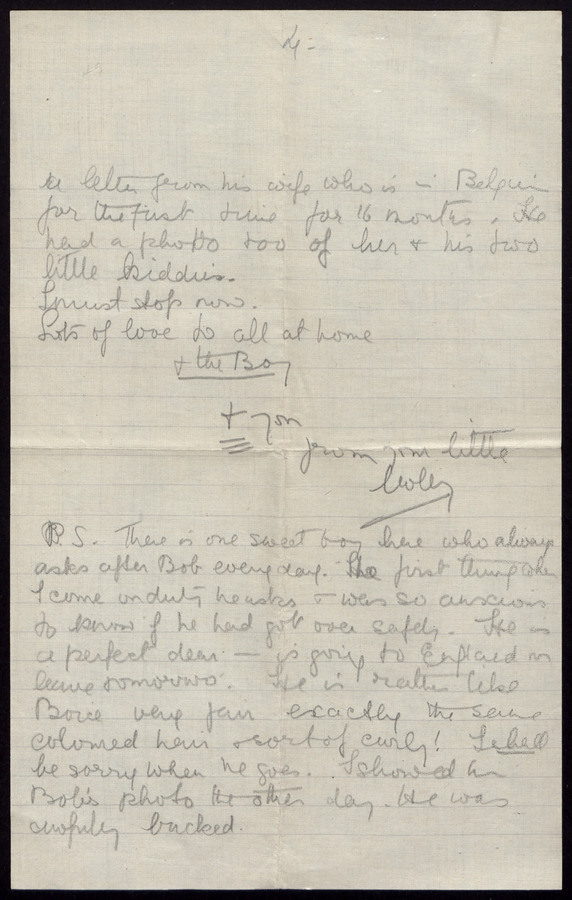 4 :-
a letter from his wife who is in Belgium
for the first time for 16 months. He
had a photo too of her & his two
little kiddies.
I must stop now.
Lots of love to all at home
& the Boy
& you
from your little
P.S. There is one sweet boy here who always
asks after Bob every day. The first thing when
I come on duty he asks & was so anxious
to know if he had got over safely. He is
a perfect dear — is going to England on
leave tomorrow. He is rather like
very fair exactly the same
coloured hair & sort of curly! I shall
be sorry when he goes. I showed him
Bob's photo the other day. He was
awfully bucked.